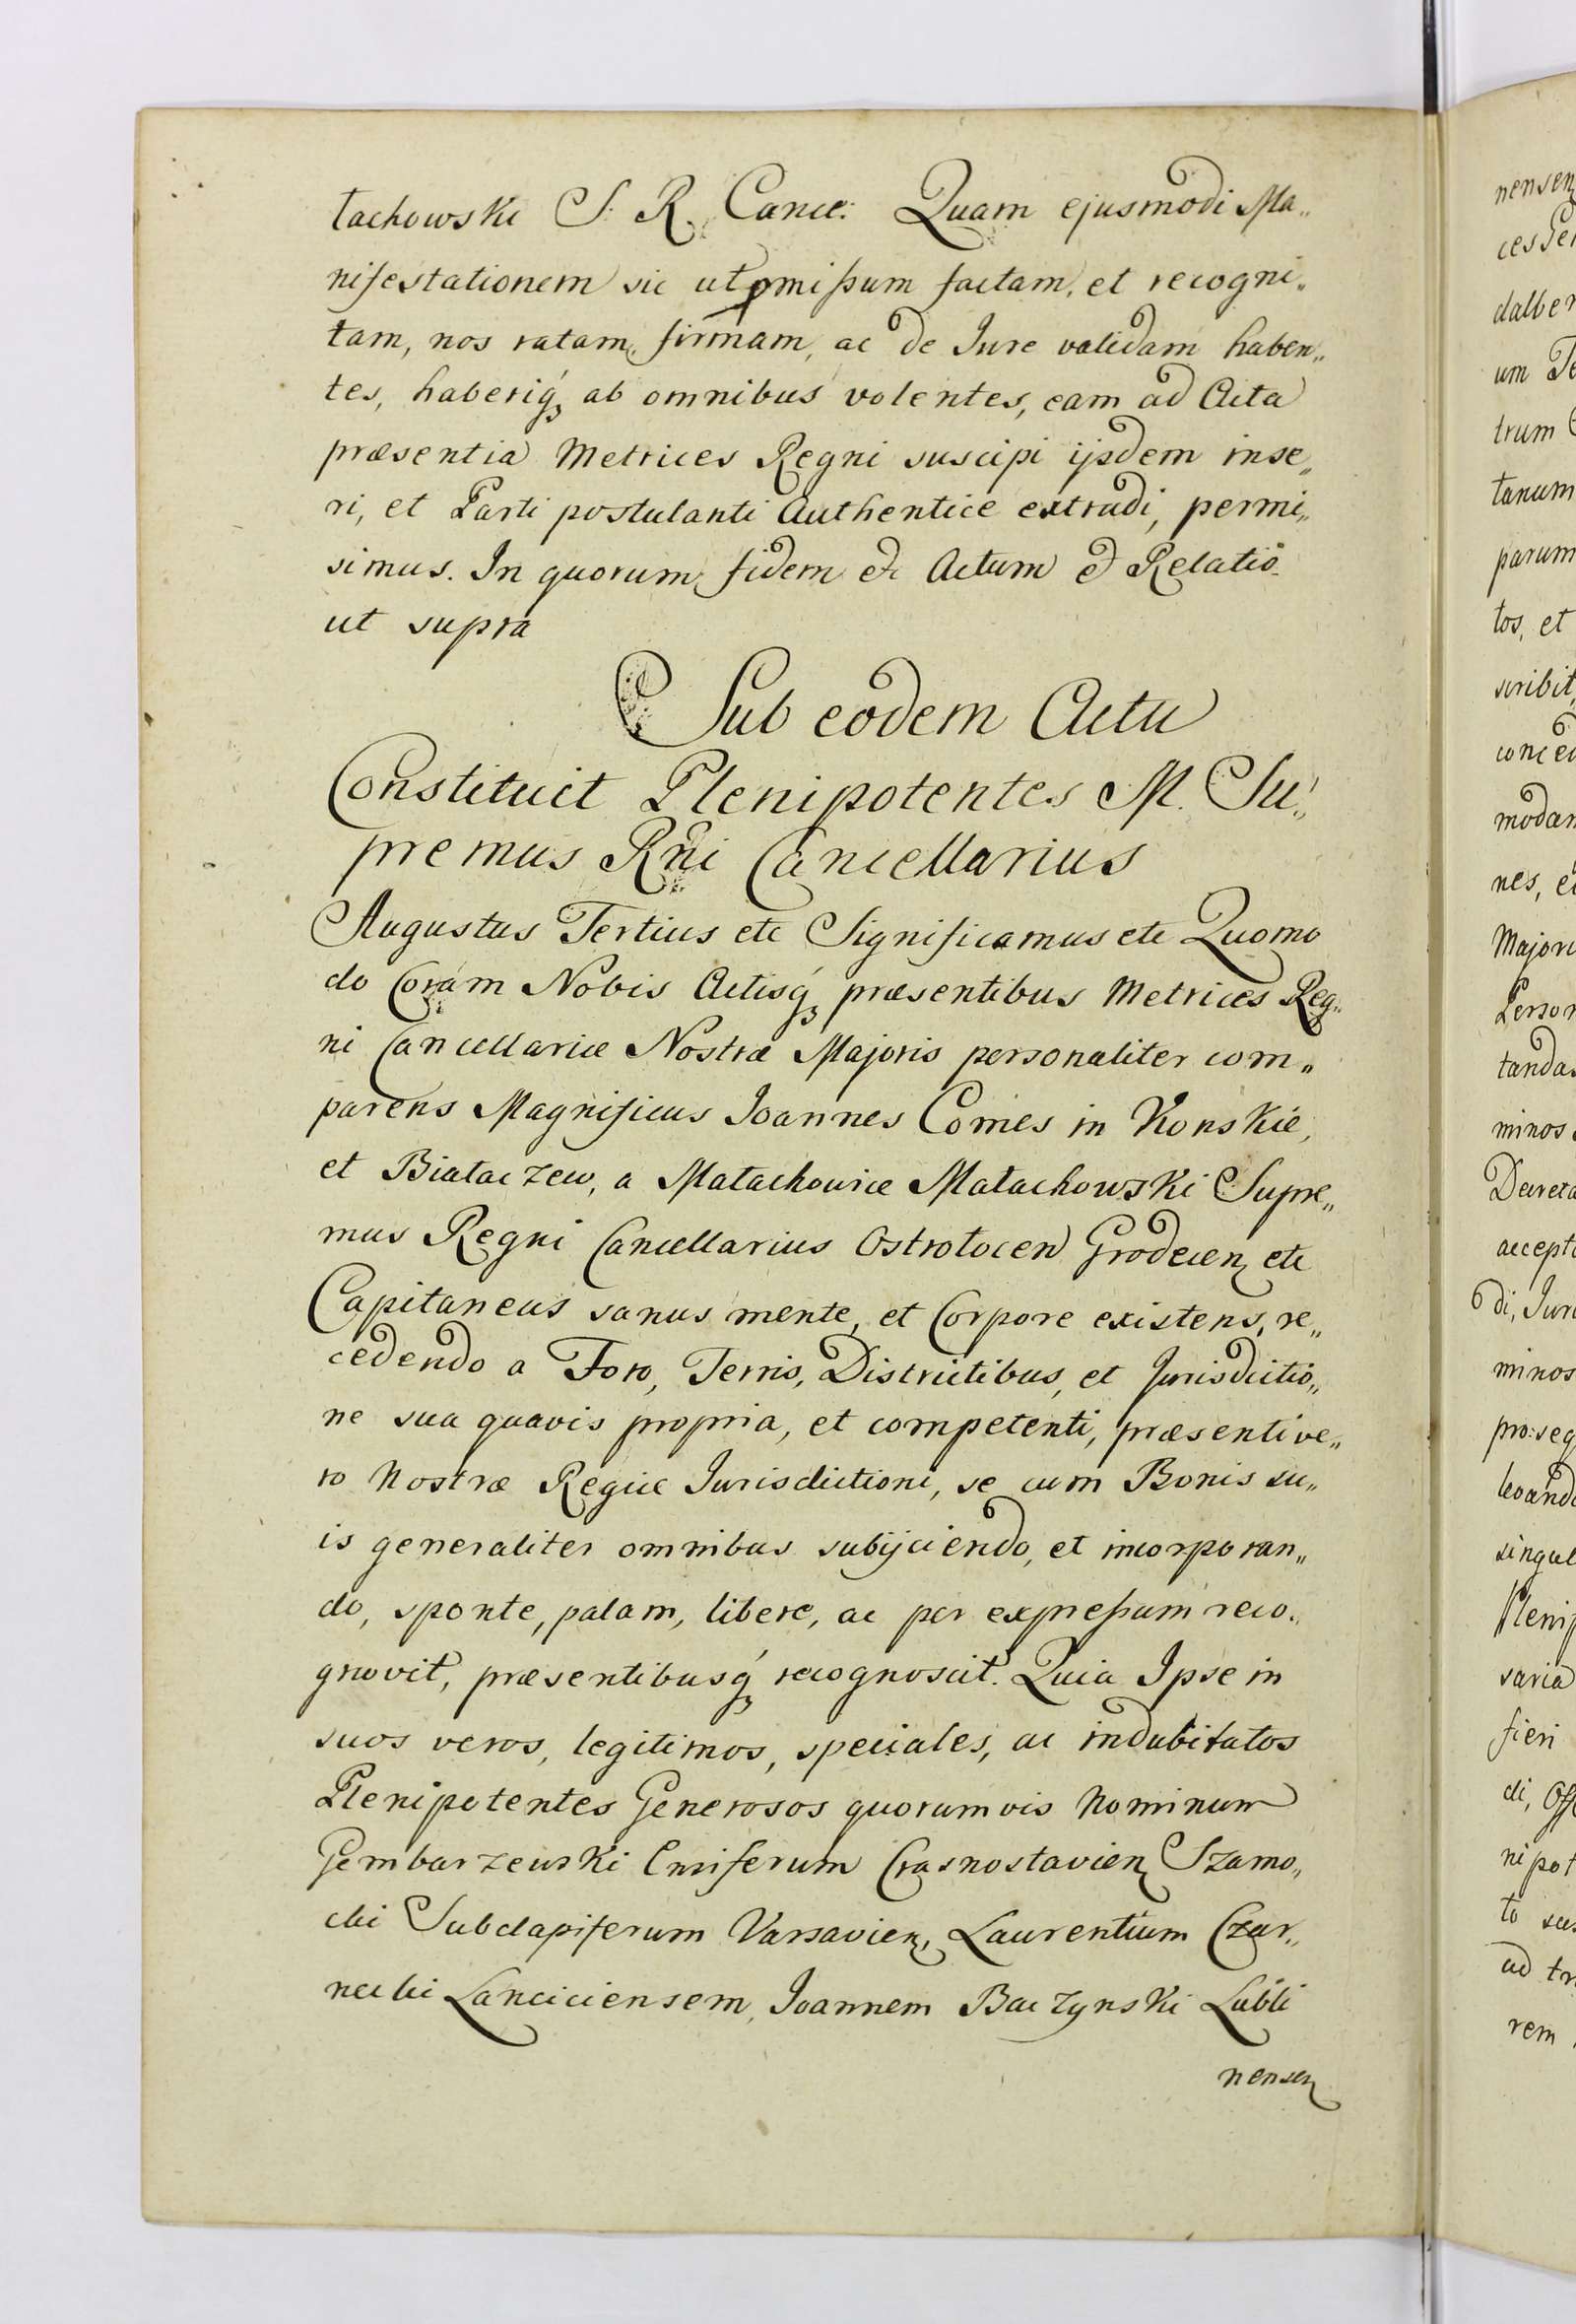 łachowski S. R. Canc: Quam ejusmodi Ma„
nifestationem sic ut pmissum factam, et recogni„
tam, nos ratam, firmam, ac de Jure validam haben„
tes, haberiq́ʒ ab omnibus volentes, eam ad Acta
præsentia Metrices Regni suscipi ijsdem inse„
ri, et Parti postulanti Authentice extradi, permi„
simus. In quorum fidem &c Actum et Relatio
ut supra
Sub eodem Actu
Constituit Plenipotentes M. Su„
premus Rni Cancellarius
Augustus Tertius etc Significamus etc Quomo
do Coram Nobis Actisq́ʒ præsentibus Metrices Reg„
ni Cancellariæ Nostræ Majoris personaliter com„
parens Magnificus Joannes Comes in Konskie,
et Białaczew, a Małachowice Małachowski Supre„
mus Regni Cancellarius Ostrołocen Grodecenʒ etc
Capitaneus sanus mente, et Corpore existens, re„
cedendo a Foro, Terris, Districtibus, et Jurisdictio„
ne sua quavis propria, et competenti, præsenti ve„
ro Nostræ Regiæ Jurisdictioni, se cum Bonis su„
is generaliter omnibus subijciendo, et incorporan„
do, sponte, palam, libere, ac per expressum reco„
gnovit, præsentibusq́ʒ recognoscit. Quia Ipse in
suos veros, legitimos, speciales, ac indubitatos
Plenipotentes Generosos quorumvis Nominum
Gembarzewski Ensiferum Crasnostavienʒ Szamo„
cki Subdapiferum Varsavienʒ, Laurentium Czar„
necki Lanciciensem, Joannem Baczynski Lubli
nensenʒ
nensenʒ
dalber
trum
tanum
parum
tos, et
scribit
nes,
Person
tanda
minos
Decreta
minos
singul
Plenip
saria
fieri
nipot
rem